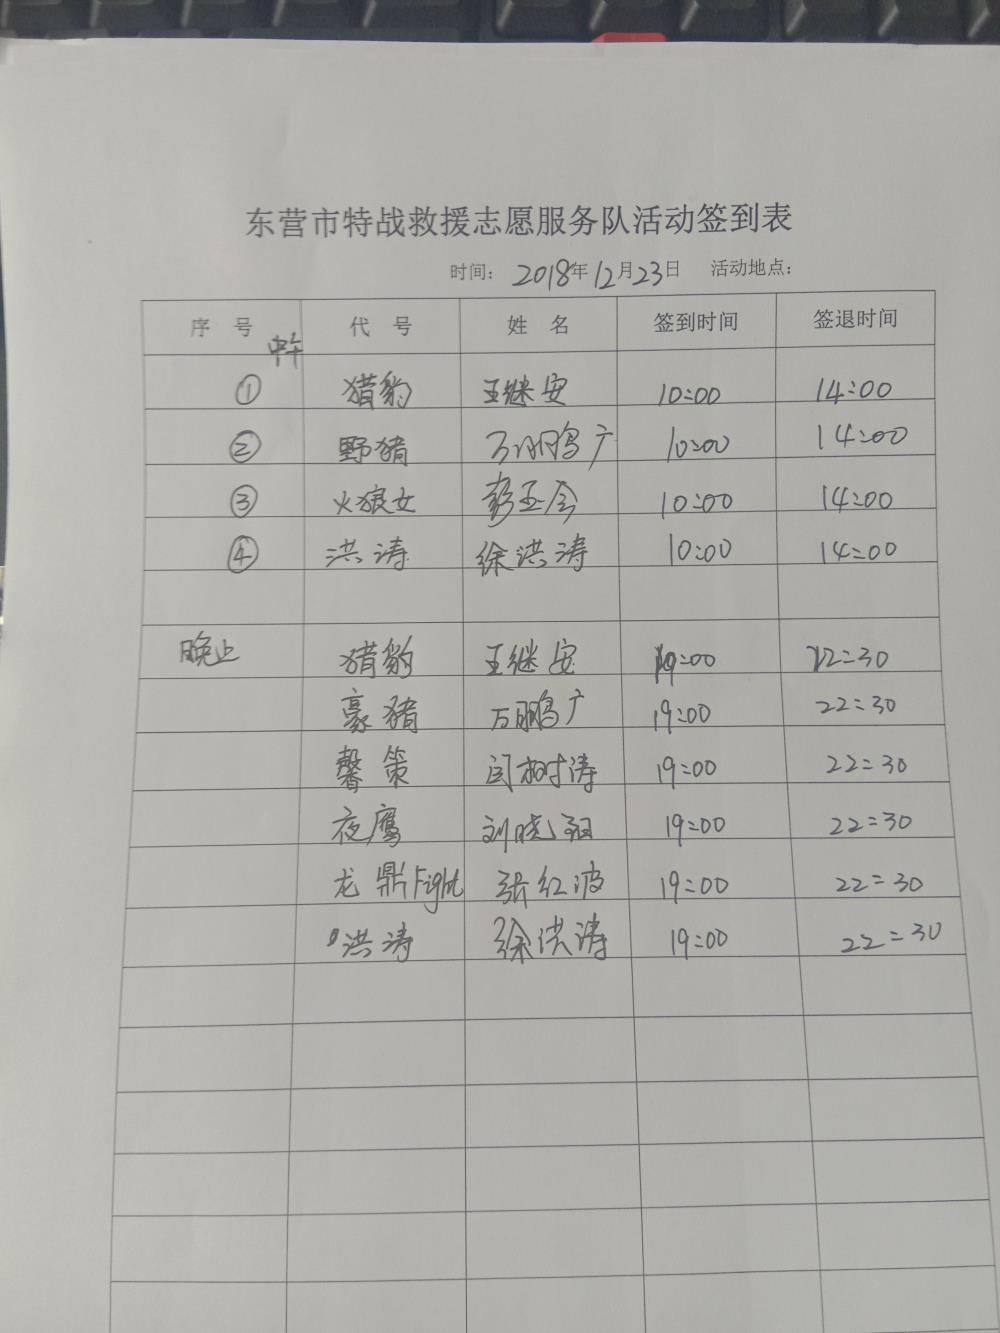 东营市特战救援志愿服务队活动签到表
时间： 2018年12月23日 活动地点：
序 号 代 号 姓 名 签到时间 签退时间
中午
① 猎豹 王继安 10:00 14:00
② 野猪 万鹏广 10:00 14:00
③ 火狼女 彭玉会 10:00 14:00
④ 洪涛 徐洪涛 10:00 14:00
晚上 猎豹 王继安 19:00 22:30
豪猪 万鹏广 19:00 22:30
馨策 闫树涛 19:00 22:30
夜鹰 刘晓 19:00 22:30
龙鼎Fight 张红波 19:00 22:30
洪涛 徐洪涛 19:00 22:30